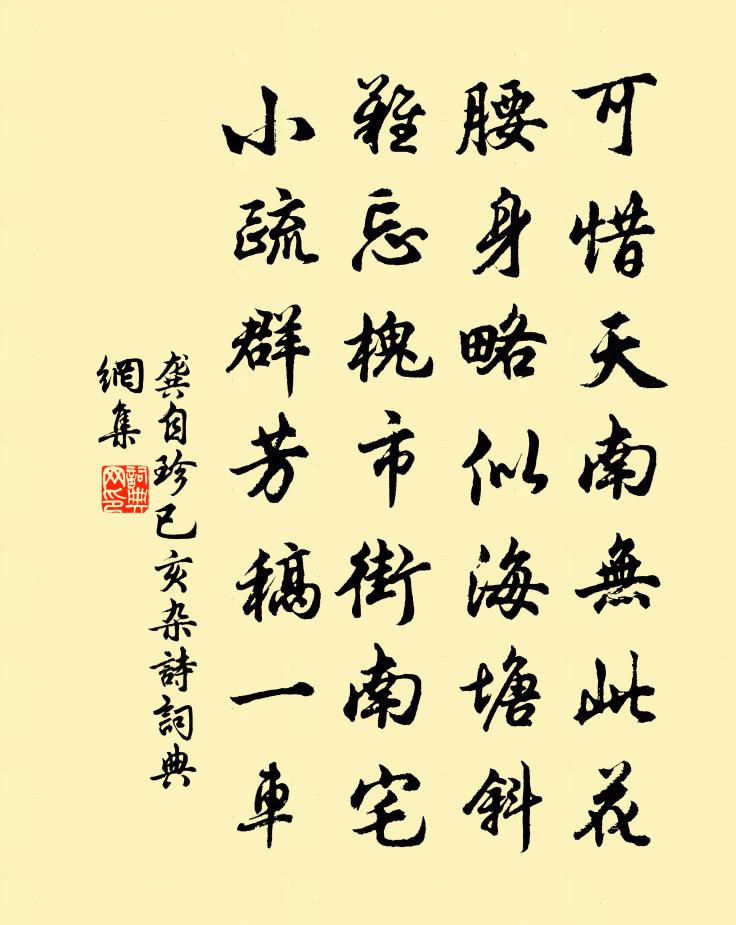 可惜天南無此花
腰身略似海塘斜
難忘槐市街南宅
小疏群芳稿一車
龔自珍己亥杂詩詞典
網集
詞典
网印